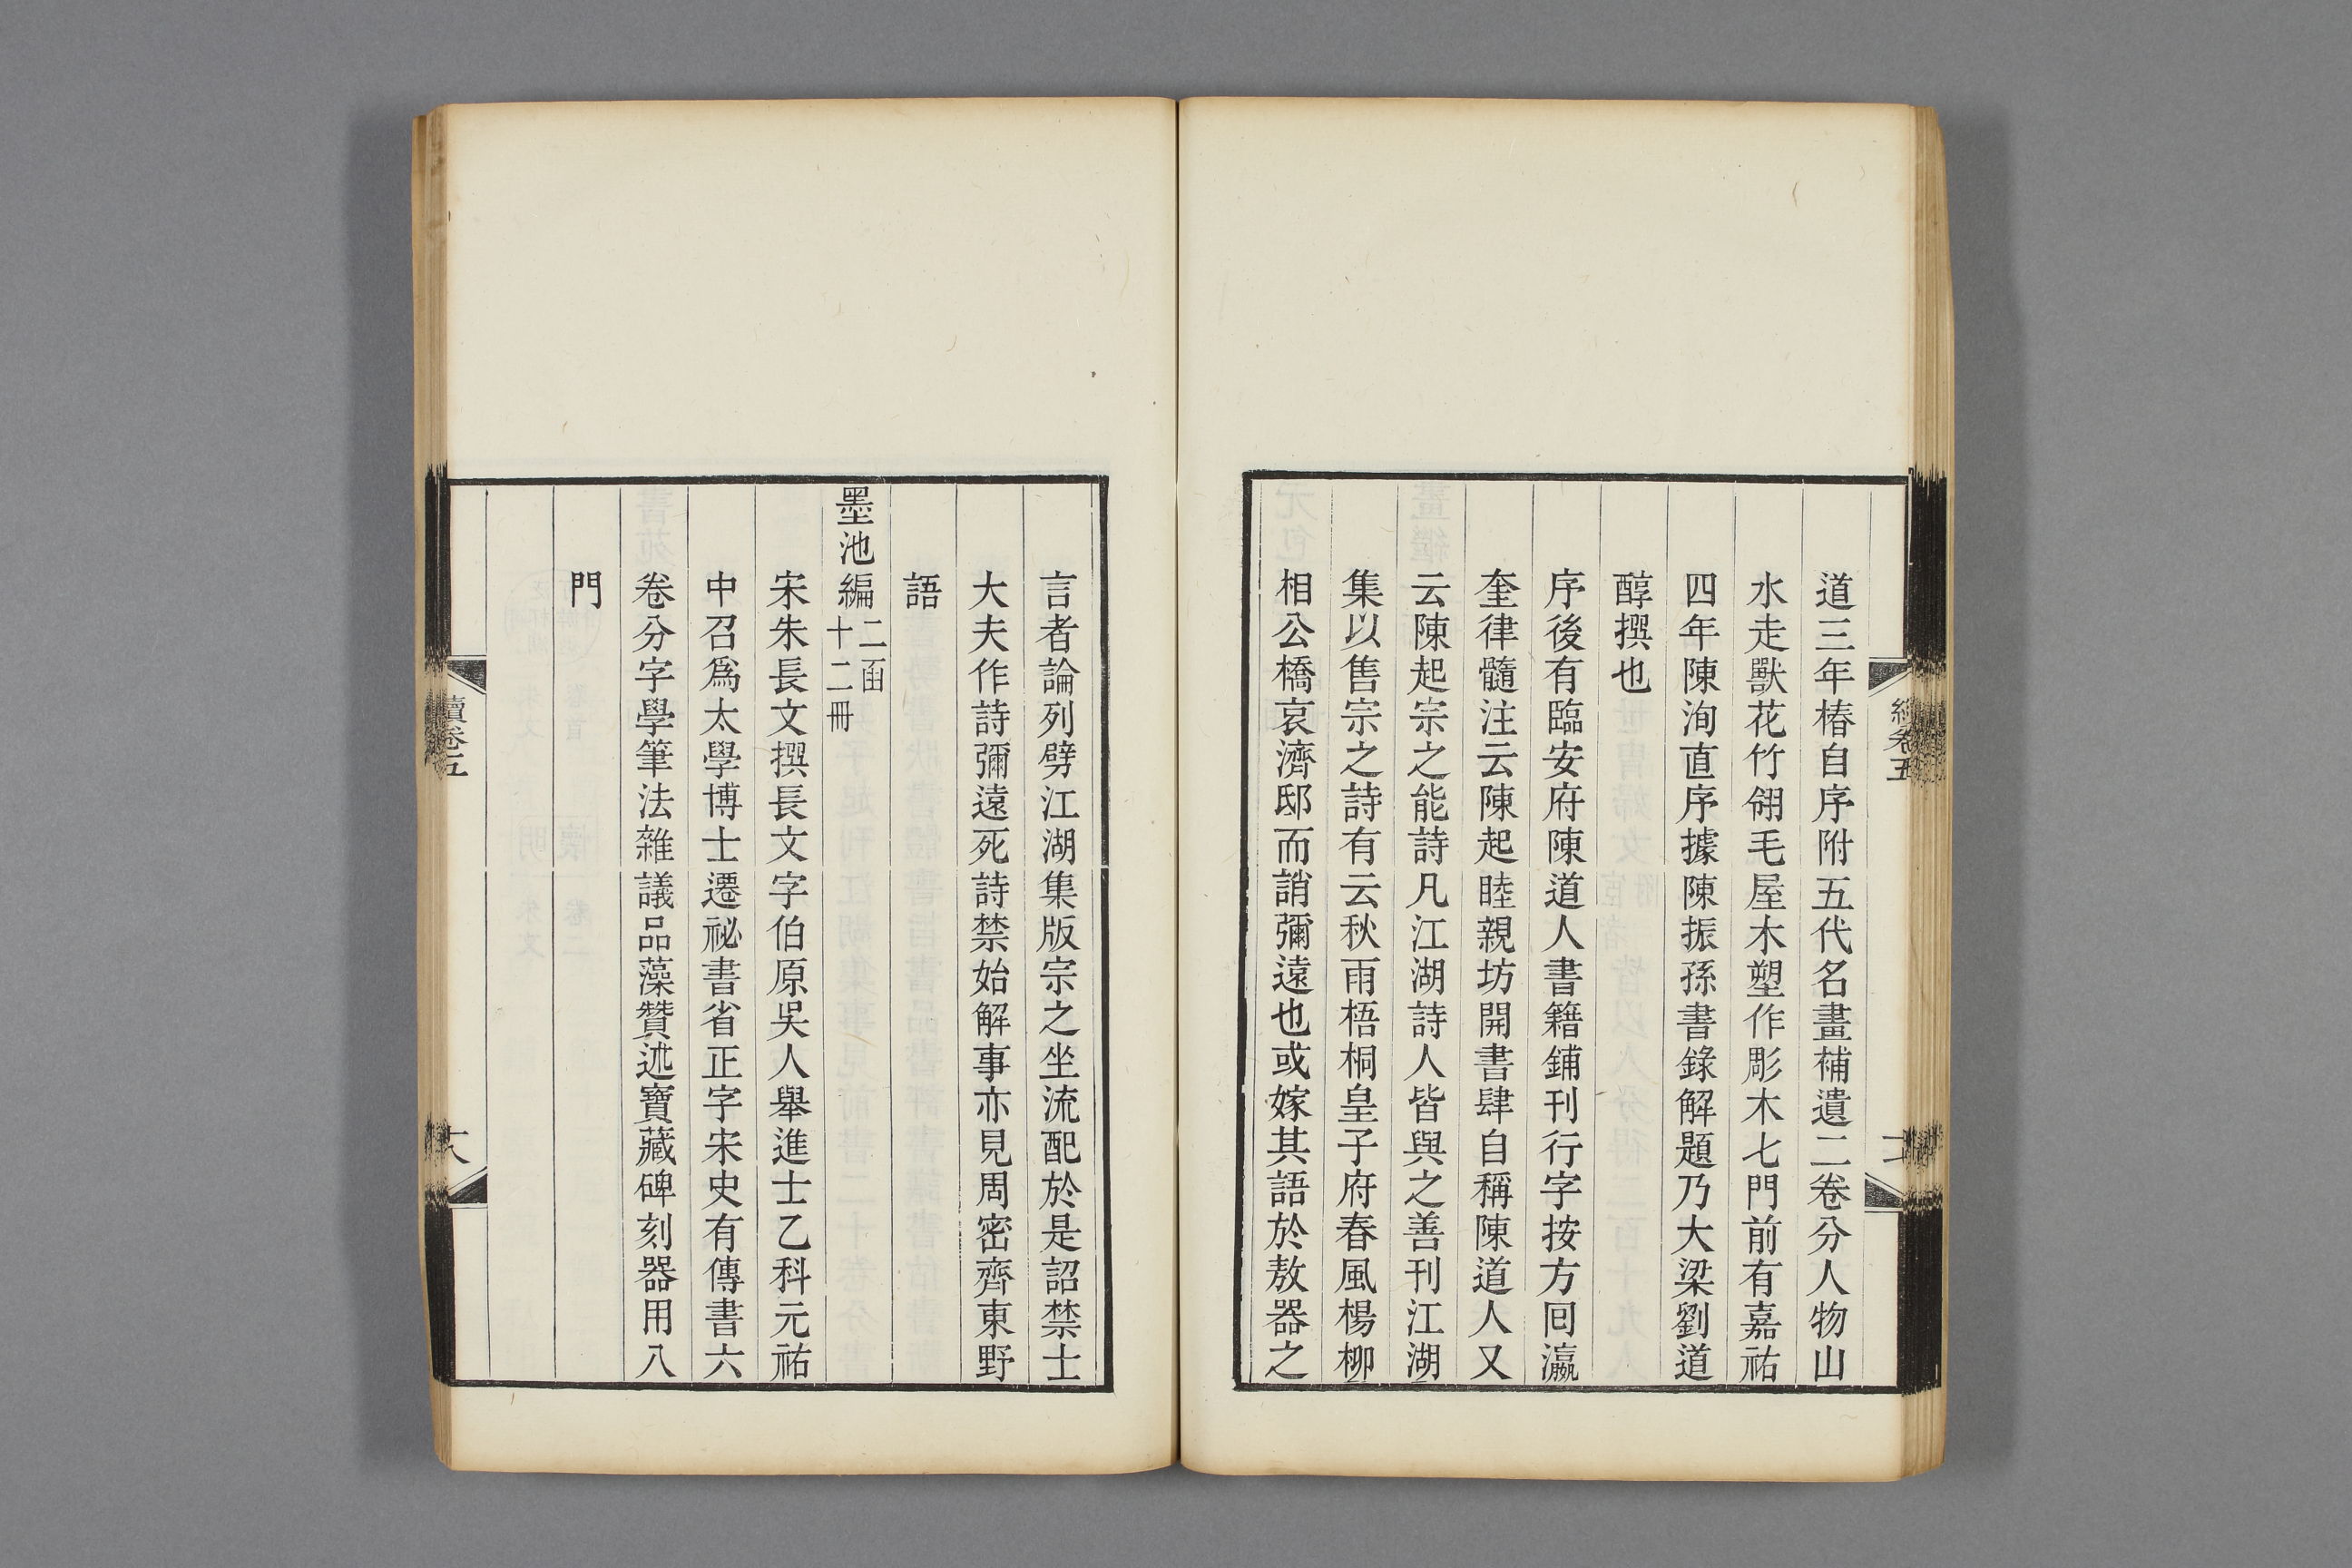 道三年椿自序附五代名畫補遺二卷分人物山
水走獸花竹翎毛屋木塑作彫木七門前有嘉祐
四年陳洵直序據陳振孫書錄解題乃大梁劉道
醇撰也
序後有臨安府陳道人書籍鋪刊行字按方回瀛
奎律髓注云陳起睦親坊開書肆自稱陳道人又
云陳起宗之能詩凡江湖詩人皆與之善刊江湖
集以售宗之詩有云秋雨梧桐皇子府春風楊柳
相公橋哀濟邸而誚彌遠也或嫁其語於敖器之
言者論列劈江湖集版宗之坐流配於是詔禁士
大夫作詩彌遠死詩禁始解事亦見周密齊東野
語
墨池編二函十二冊
宋朱長文撰長文字伯原吳人舉進士乙科元祐
中召爲太學博士遷祕書省正字宋史有傳書六
卷分字學筆法雜議品藻贊述寶藏碑刻器用八
門
續卷五
十八